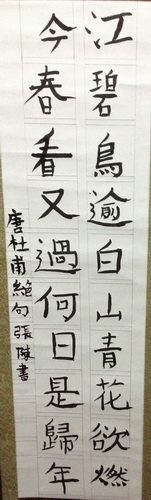 江碧鳥逾白山青花欲燃
今春看又過何日是歸年
唐杜甫絕句張陳書